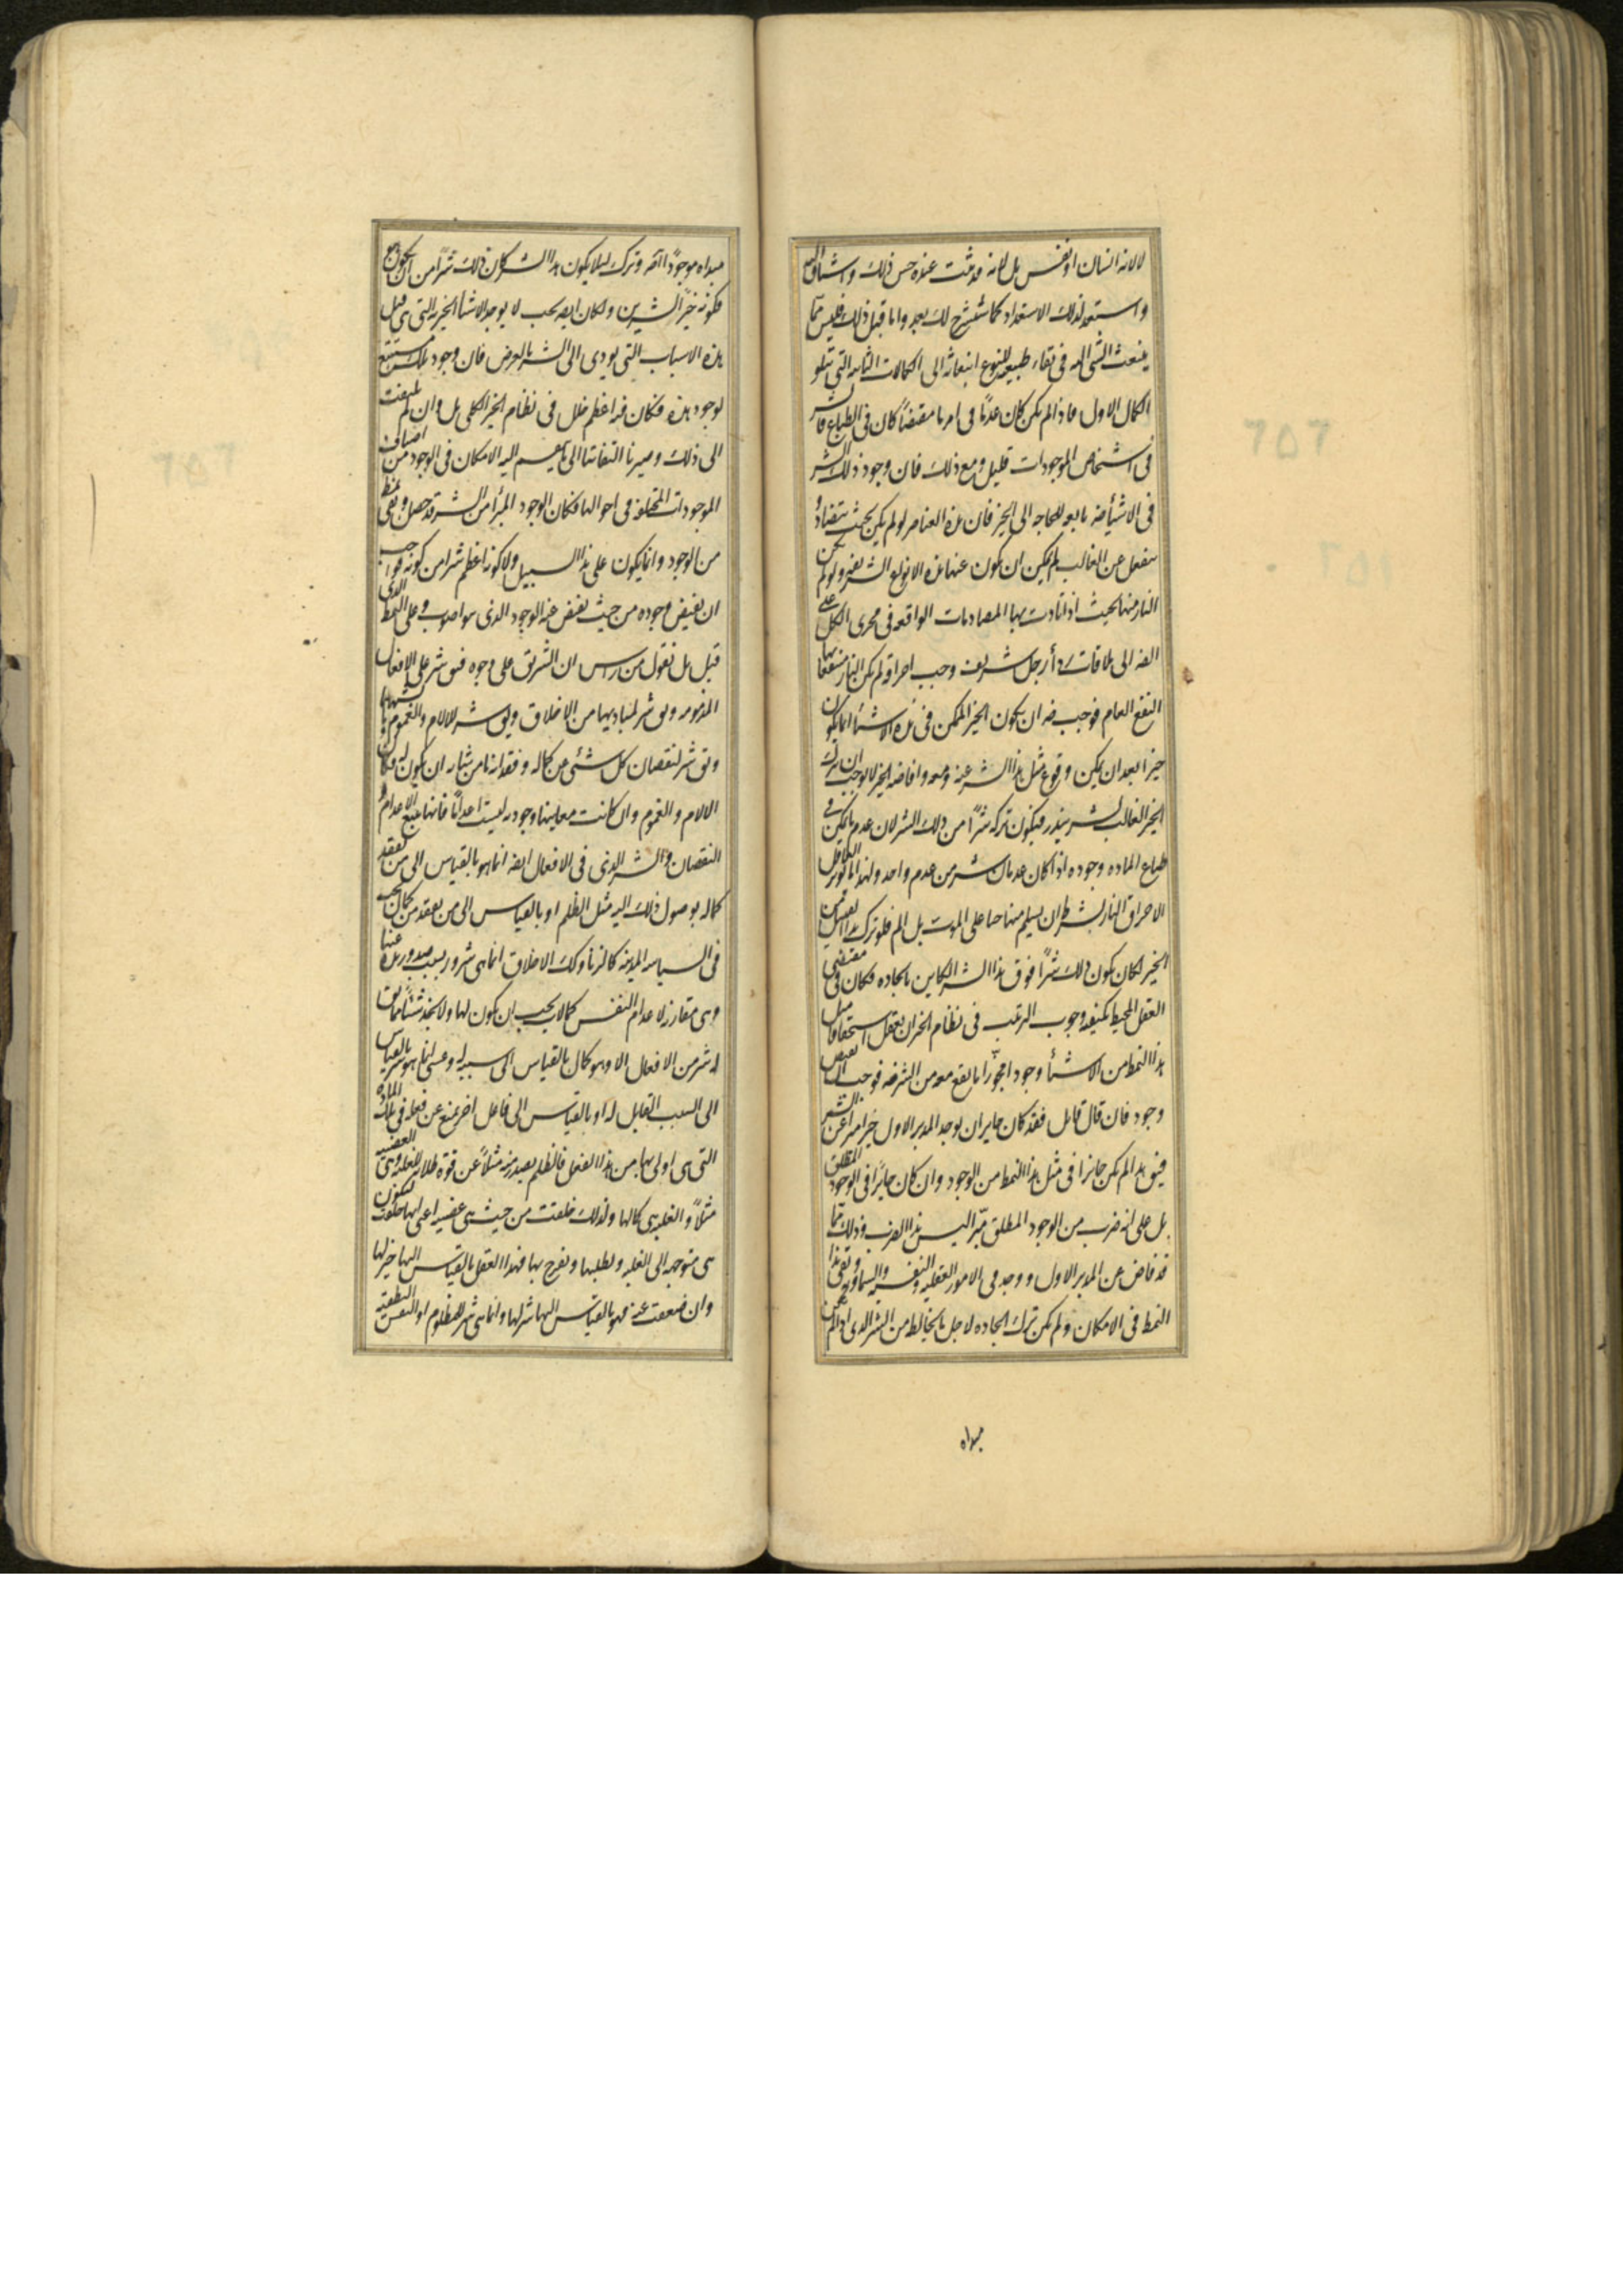 لا لانه انسان او نفس بل لانه قد ثبت عنده حسن ذلك واشتاق اليه
واستعد لذلك الاستعداد كما سنشرح لك بعد واما قبل ذلك فليس مما
ينبعث الشى اليه فى بقاء طبيعة النوع انبعاثه الى الكمالات الثانيه التى تتلو
الكمال الاول فاذا لم يكن كان عدمًا فى امر ما مقتضيًا كان فى الطباع فالشر
فى اشخاص الموجودات قليل ومع ذلك فان وجود ذلك الشر
فى الاشيأ ضه تابعه للحاجه الى الخير فان هذه العناصر لو لم يكن بحيث يتضاد و
ينفعل عن الغالب لم يمكن ان يكون عنها هذه الانواع الشريفه ولو لم يكن
النار منها بحيث اذا تادت بها المصادمات الواقعه فى مجرى الكل على
الضه الى ملاقات ردأ رجل شريف وجب احراقه لم يكن النار منتفعا بها
النفع العام فوجب ضه ان يكون الخير الممكن فى هذه الاشيأ انما يكون
خيرا بعد ان يمكن وقوع مثل هذا الشر عنه ومعه وافاضه الخير لا يوجب ان يترك
الخير الغالب لشر يندر فيكون تركه شرًا من ذلك الشر لان عدم ما يمكن فى
طباع الماده وجوده اذا كان عدمان شر من عدم واحد ولهذا ما يوثر العاقل
الاحراق بالنار بشرط ان يسلم منها حيا على الموت بلا الم فلو ترك هذا القبيل من
الخير لكان يكون ذلك شرًا فوق هذا الشر الكاين بايجاده فكان فى مقتضى
العقل المحيط بكيفيه وجوب الترتيب فى نظام الخير ان يعقل استحقاق مثل
هذا النمط من الاشيأ وجودا مجوّزا ما يقع معه من الشر ضه فوجب ان يفيض
وجوده فان قال قايل فقد كان جايزا ان يوجد المدبر الاول خيرا مبرا عن الشر
فيق هذا لم يكن جائزا فى مثل هذا النمط من الوجود وان كان جايزًا فى الوجود المطلق
بل على انه ضرب من الوجود المطلق مبّرا ليس هذا الضرب وذلك مما
قد فاض عن المدبر الاول ووجد فى الامور العقليه والنفسيه والسماويه وبقى هذا
النمط فى الامكان ولم يكن ترك ايجاده لاجل ما يخالط من الشر الذى اذا لم يكن
مبداه
مبداه موجودًا اصه وترك ليلا يكون هذا الشر كان ذلك شرًا من ان يكون هو
فكونه خيّر الشرين ولكان ايضه يجب لا يوجد الاشيأ الخيريه التى هى قبل
هذه الاسباب التى يودى الى الشر بالعرض فان وجود تلك مستتبع
لوجود هذه فكان فيه اعظم خلل فى نظام الخير الكلى بل وان لم نلتفت
الى ذلك وصيرنا التفاتنا الى ما ينقسم اليه الامكان فى الوجود من اصناف
الموجودات المختلفه فى احوالها فكان الوجود المبرأ من الشر قد حصل وبقى نمط
من الوجود وانما يكون على هذا السبيل ولا كونه اعظم شرا من كونه فواجب
ان يفيض وجوده من حيث يفيض عنه الوجود الذى هو اصوب وعلى النمط الذى
قيل بل نقول من راس ان الشر يق على وجوه فيق شر على الافعال
المذمومه ويق شر لمباديها من الاخلاق ويق شر للالام والغموم وما يشبهها
ويق شر لنقصان كل شئى من كماله وفقدانه ما من شانه ان يكون له فكان
الالام والغموم وان كانت معانيها وجوديه ليست اعدامًا فانها يتبع الاعدام و
النقصان والشر الذى فى الافعال ايضه انما هو بالقياس الى من يفقد
كماله بوصول ذلك اليه مثل الظلم او بالقياس الى من يفقد من كمال يجب
فى السياسه المدينيه كالزنا وكك الاخلاق انما هى شرور بسبب صدور هذه عنها
وهى مقارنه لاعدام النفس كمالات يجب ان يكون لها ولا نجد شئيًا مما يق
له شر من الافعال الا وهو كمال بالقياس الى سببه له وعسى انما هو شر بالقياس
الى السبب القابل له او بالقياس الى فاعل اخر يمنع عن فعله فى تلك الماده
التى هى اولى بها من هذا الفعل فالظلم يصدر منه مثلًا عن قوه طلابه للغلبه وهى الغضبيه
مثلًا والغلبه هى كمالها ولذلك خلقت من حيث هى غضبيه اعنى انها خلقت ليكون
هى متوجهه الى الغلبه وبطلبها وبفرح بها فهذا الفعل بالقياس اليها خير لها
وان ضعفت عنه فهو بالقياس اليها شر لها وانما هى شر للمظلوم او النفس النطقيه